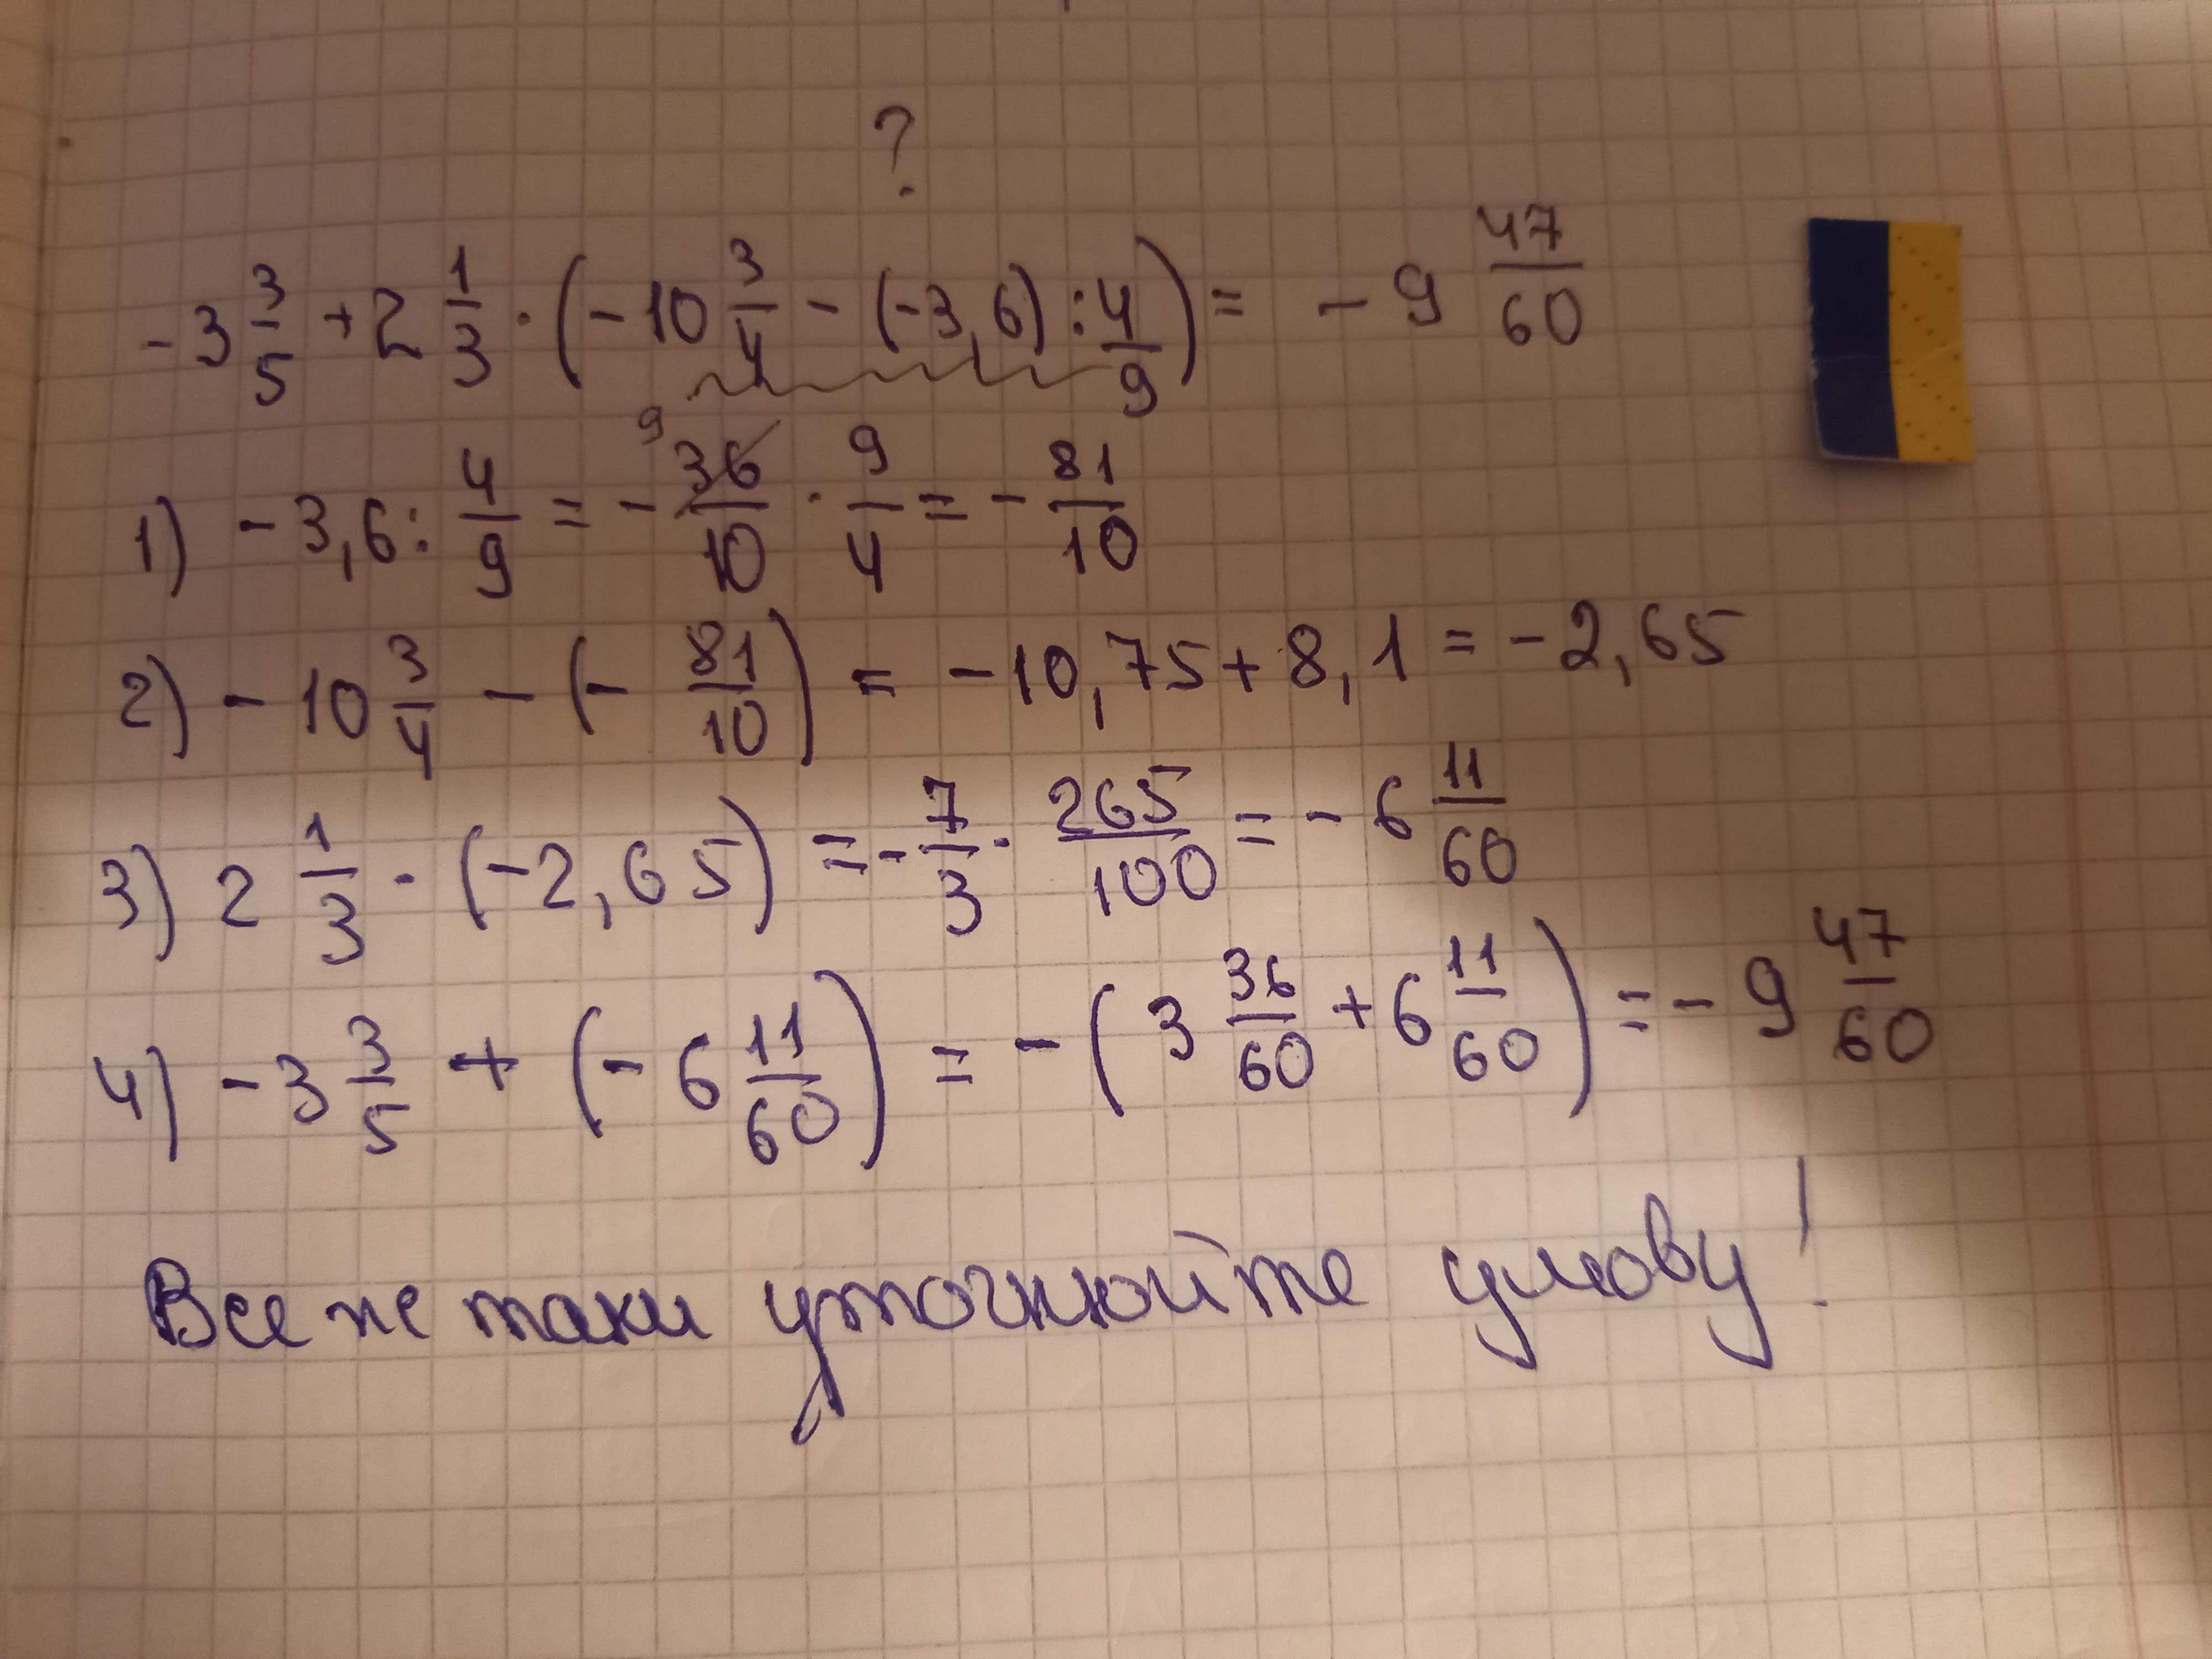 ?
-3 3/5 + 2 1/3 · (-10 3/4 - (-3,6) : 4/9) = -9 47/60
1) -3,6 : 4/9 = - 9 36/10 · 9/4 = - 81/10
2) -10 3/4 - (- 81/10) = -10,75 + 8,1 = -2,65
3) 2 1/3 · (-2,65) = - 7/3 · 265/100 = -6 11/60
4) -3 3/5 + (-6 11/60) = -(3 36/60 + 6 11/60) = -9 47/60
Все же таки уточнюйте умову!